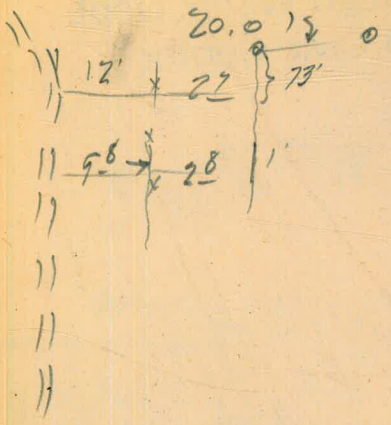 20.0 15
12' 27 73'
9 8 28 1'